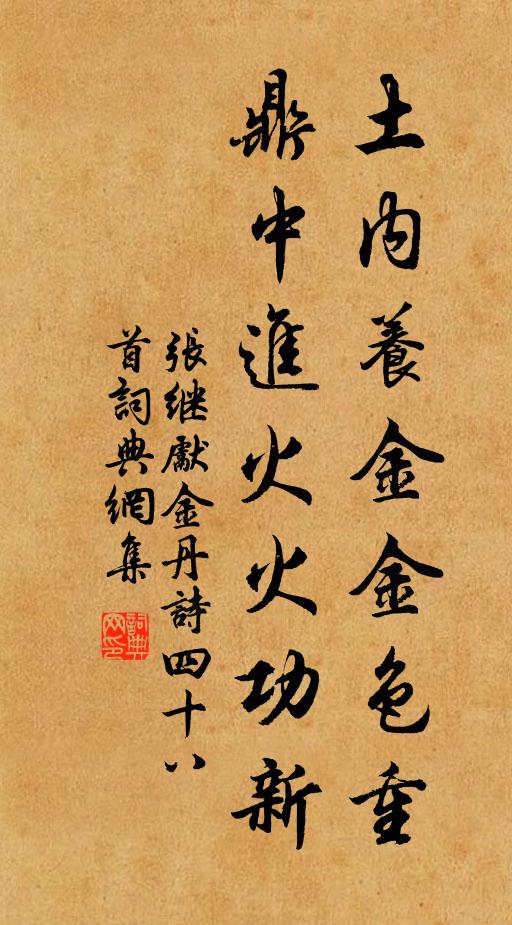 土内養金金色重
鼎中進火火功新
張继獻金丹詩四十八
首詞典網集
詞典网印